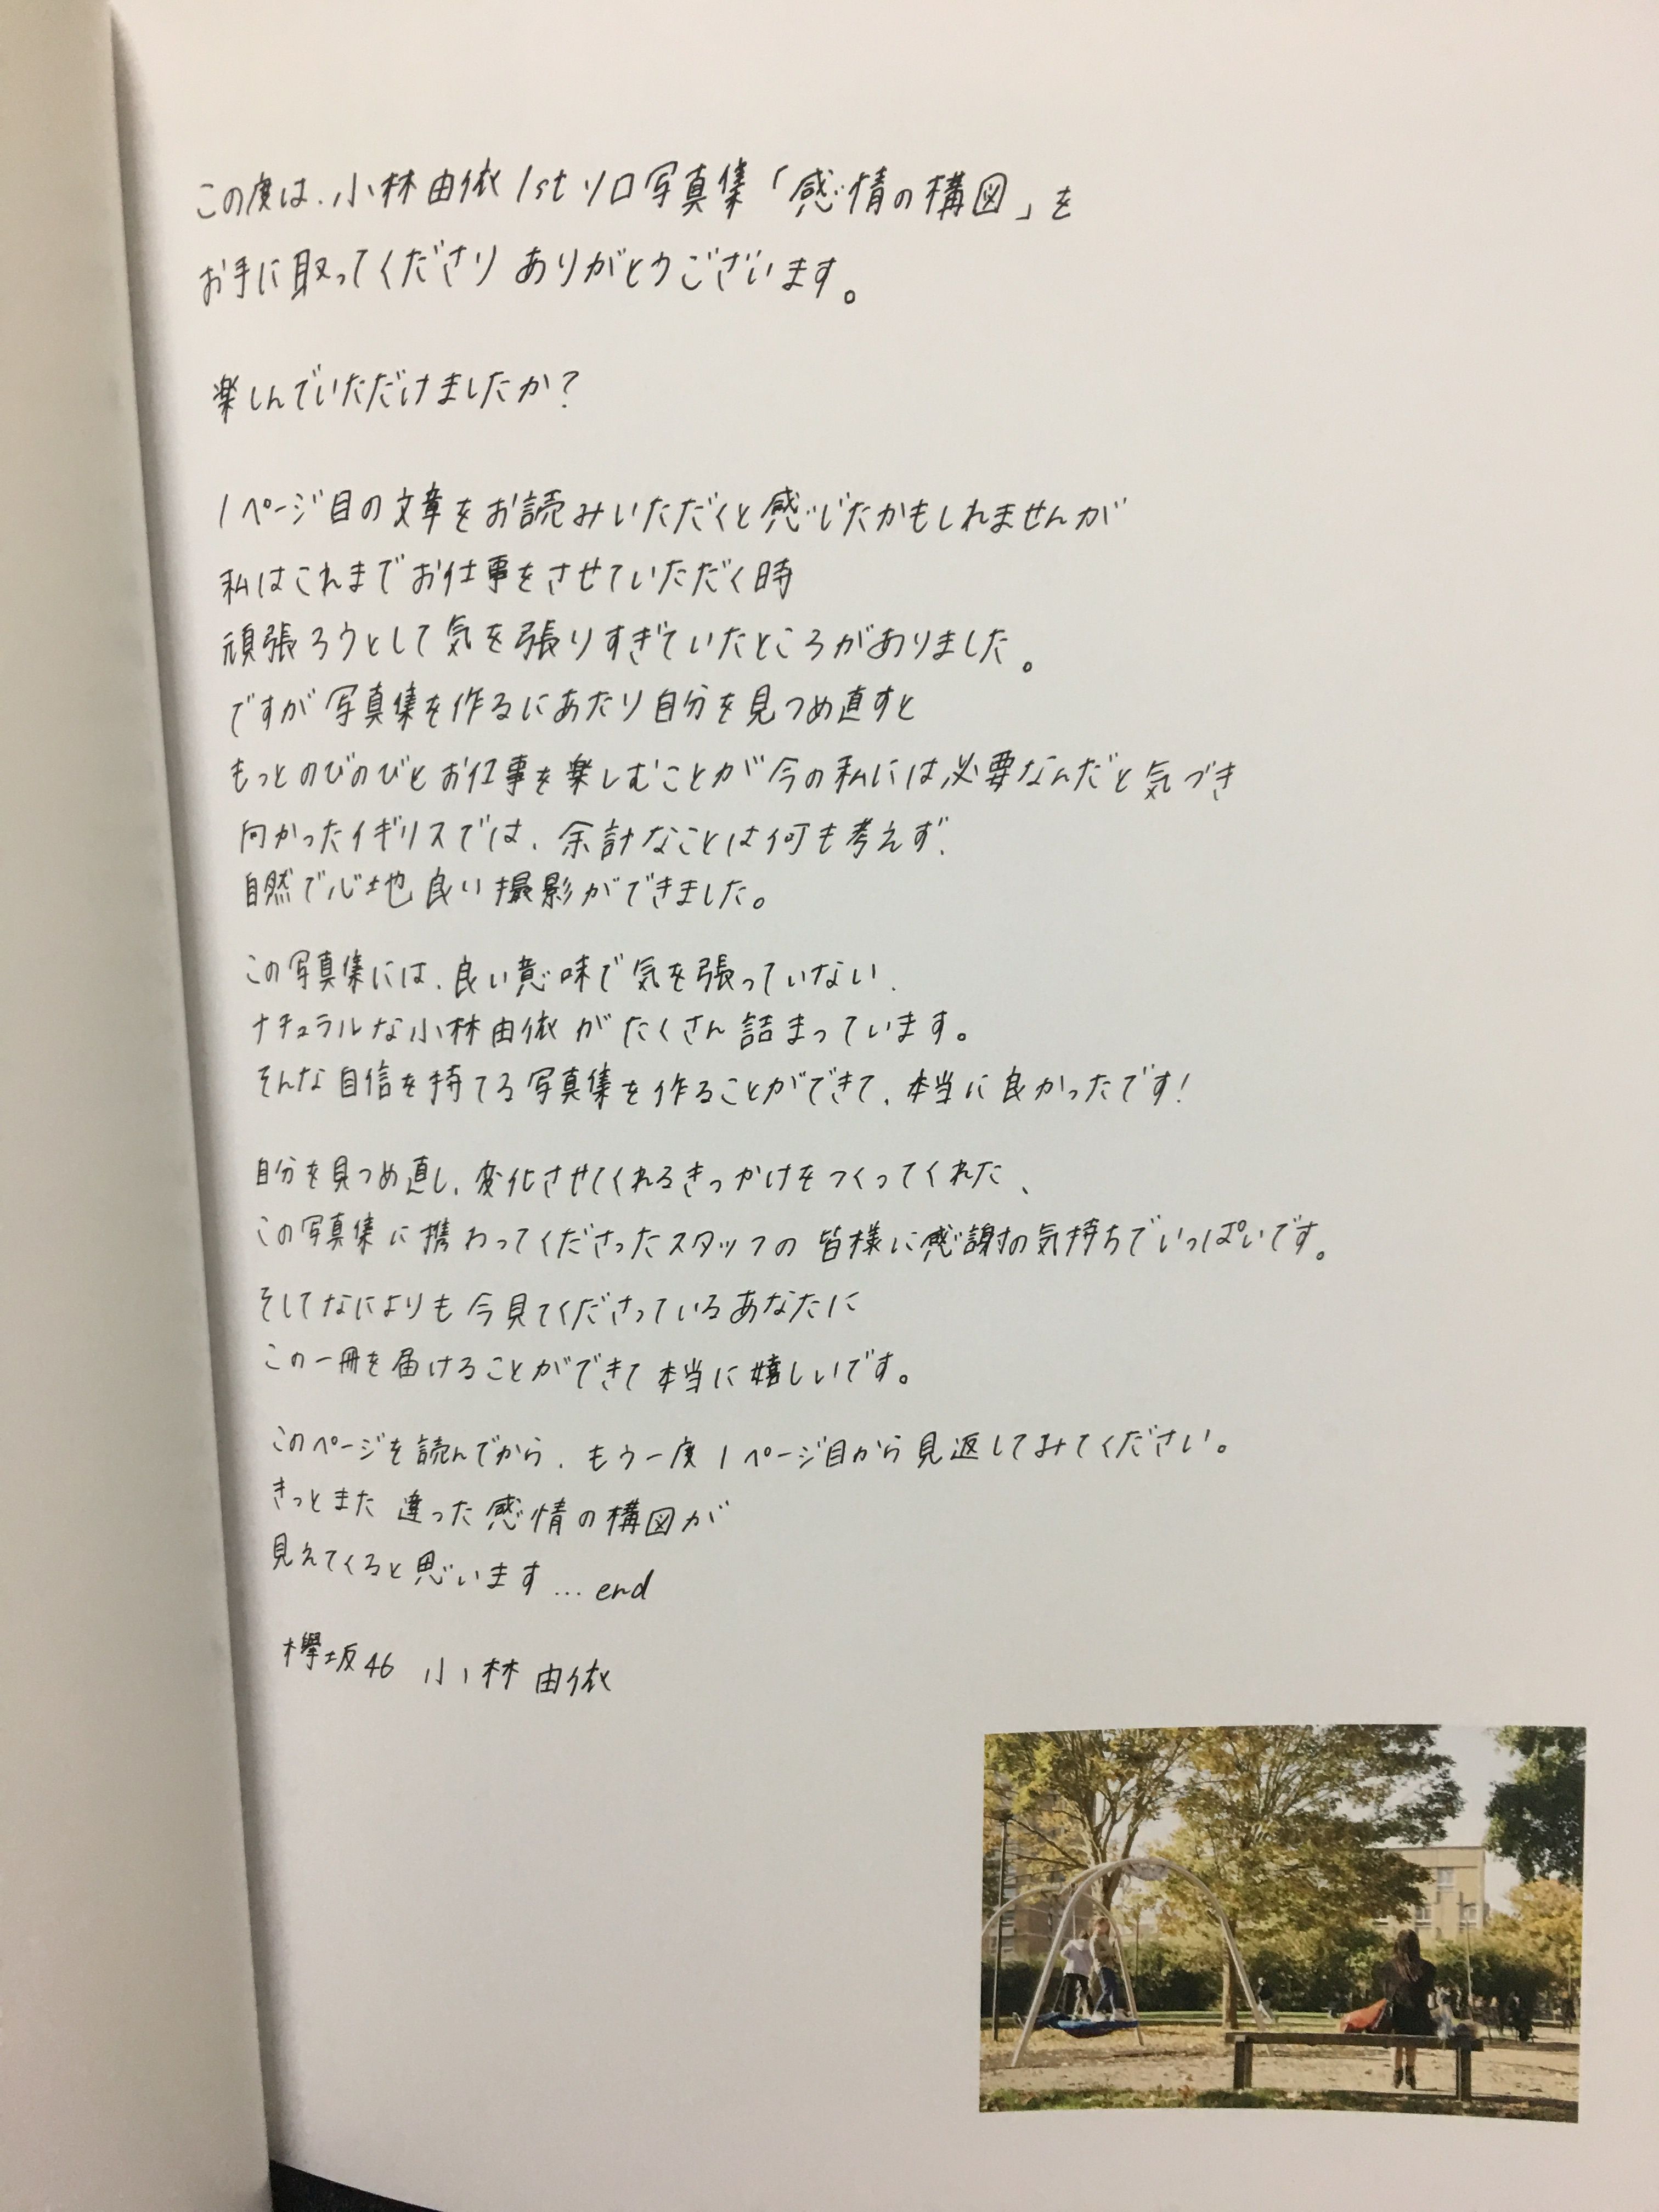 この度は、小林由依1stソロ写真集「感情の構図」を
お手に取ってくださりありがとうございます。
楽しんでいただけましたか?
1ページ目の文章をお読みいただくと感じたかもしれませんが
私はこれまでお仕事をさせていただく時
頑張ろうとして気を張りすぎていたところがありました。
ですが写真集を作るにあたり自分を見つめ直すと
もっとのびのびとお仕事を楽しむことが今の私には必要なんだと気づき
向かったイギリスでは、余計なことは何も考えず、
自然で心地良い撮影ができました。
この写真集には、良い意味で気を張っていない、
ナチュラルな小林由依がたくさん詰まっています。
そんな自信を持てる写真集を作ることができて、本当に良かったです!
自分を見つめ直し、変化させてくれるきっかけをつくってくれた、
この写真集に携わってくださったスタッフの皆様に感謝の気持ちでいっぱいです。
そしてなによりも今見てくださっているあなたに
この一冊を届けることができて本当に嬉しいです。
このページを読んでから、もう一度1ページ目から見返してみてください。
きっとまた違った感情の構図が
見えてくると思います…end
欅坂46 小林由依